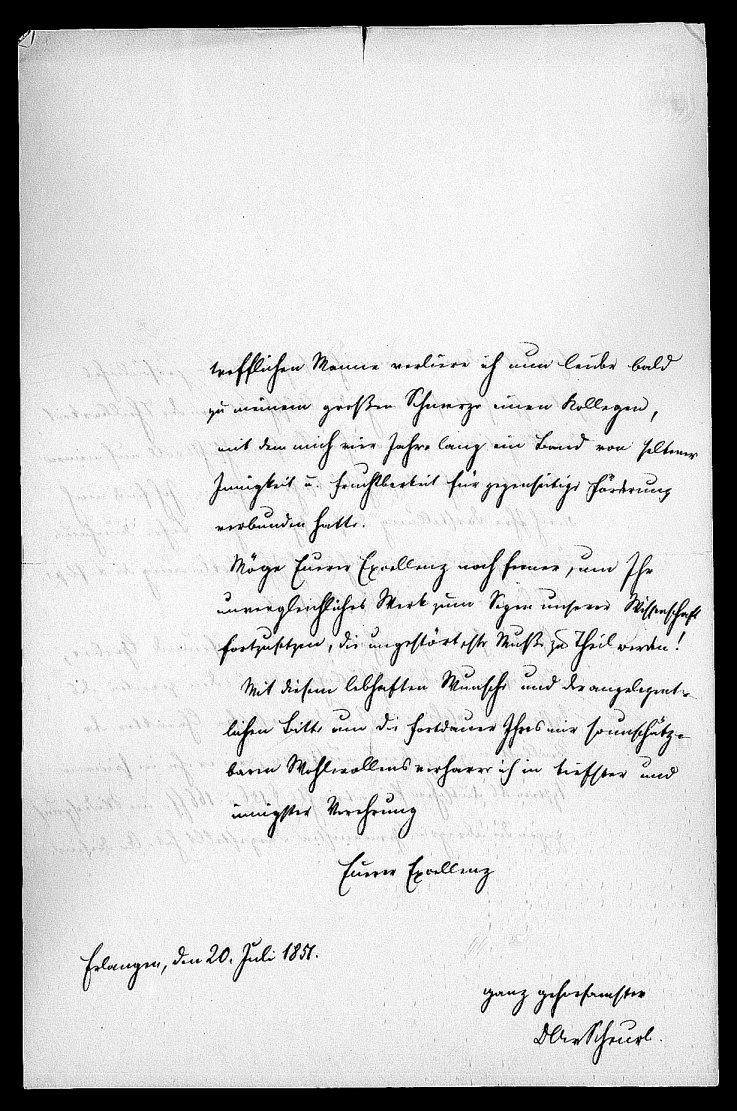 trefflichen Manne verliere ich nun leider bald
zu meinem großen Schmerze einen Kollegen,
mit dem mich vier Jahre lang ein Band von seltener
Innigkeit u. Fruchtbarkeit für gegenseitige Förderung
verbunden hatte.
Möge Euerer Excellenz noch ferner, um Ihr
unvergleichliches Werk zum Segen unserer Wissenschaft
fortzusetzen, die ungestörteste Muße zu Theil werden!
Mit diesem lebhaften Wunsche und der angelegent-
lichen Bitte um die Fortdauer Ihres mir so unschätz-
baren Wohlwollens verharre ich in tiefster und
innigster Verehrung
Euerer Excellenz
Erlangen, den 20. Juli 1851.
ganz gehorsamster
Scheurl.